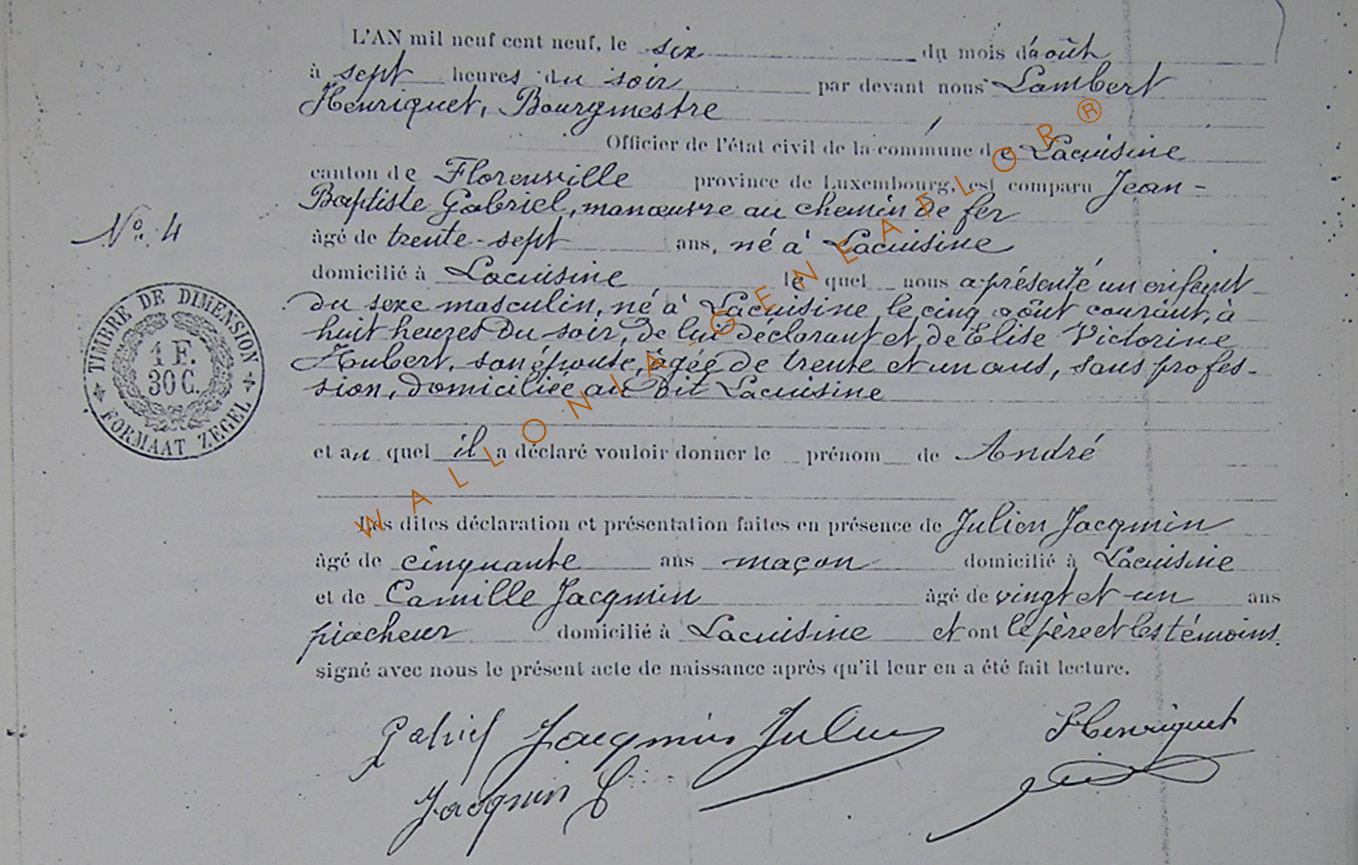 L'AN mil neuf cent neuf, le six du mois d'août
à sept heures du soir par devant nous Lambert
Henriquet, Bourgmestre
Officier de l'état civil de la commune de Lacuisine
canton de Florenville province de Luxembourg, est comparu Jean-
Baptiste Gabriel, manœuvre au chemin de fer
No. 4
âgé de trente-sept ans, né à Lacuisine
domicilié à Lacuisine le quel nous a présenté un enfant
du sexe masculin, né à Lacuisine le cinq août courant, à
huit heures du soir, de lui déclarant et de Elise Victorine
Aubert, son épouse, âgée de trente et un ans, sans profes-
sion, domiciliée au dit Lacuisine
TIMBRE DE DIMENSION
1 F.
30 C.
FORMAAT ZEGEL
et au quel il a déclaré vouloir donner le prénom de André
Les dites déclaration et présentation faites en présence de Julien Jacqmin
âgé de cinquante ans maçon domicilié à Lacuisine
et de Camille Jacqmin âgé de vingt et un ans
piocheur domicilié à Lacuisine et ont le père et les témoins
signé avec nous le présent acte de naissance après qu'il leur en a été fait lecture.
Gabriel Jacqmin Julien LHenriquet
Jacqmin C
WALLONIA GENEAFLOR®